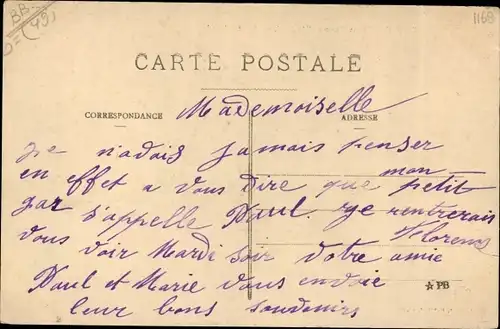 BB-
D=(45)
1168
CARTE POSTALE
CORRESPONDANCE
ADRESSE
Mademoiselle
Je n'adois jamais penser
en effet a vous dire que mon petit
gar s'appelle Paul. je rentrerais
vous voir Mardi soir Votre amie Florence
Paul et Marie vous envoie
leur bons souvenirs
☆PB